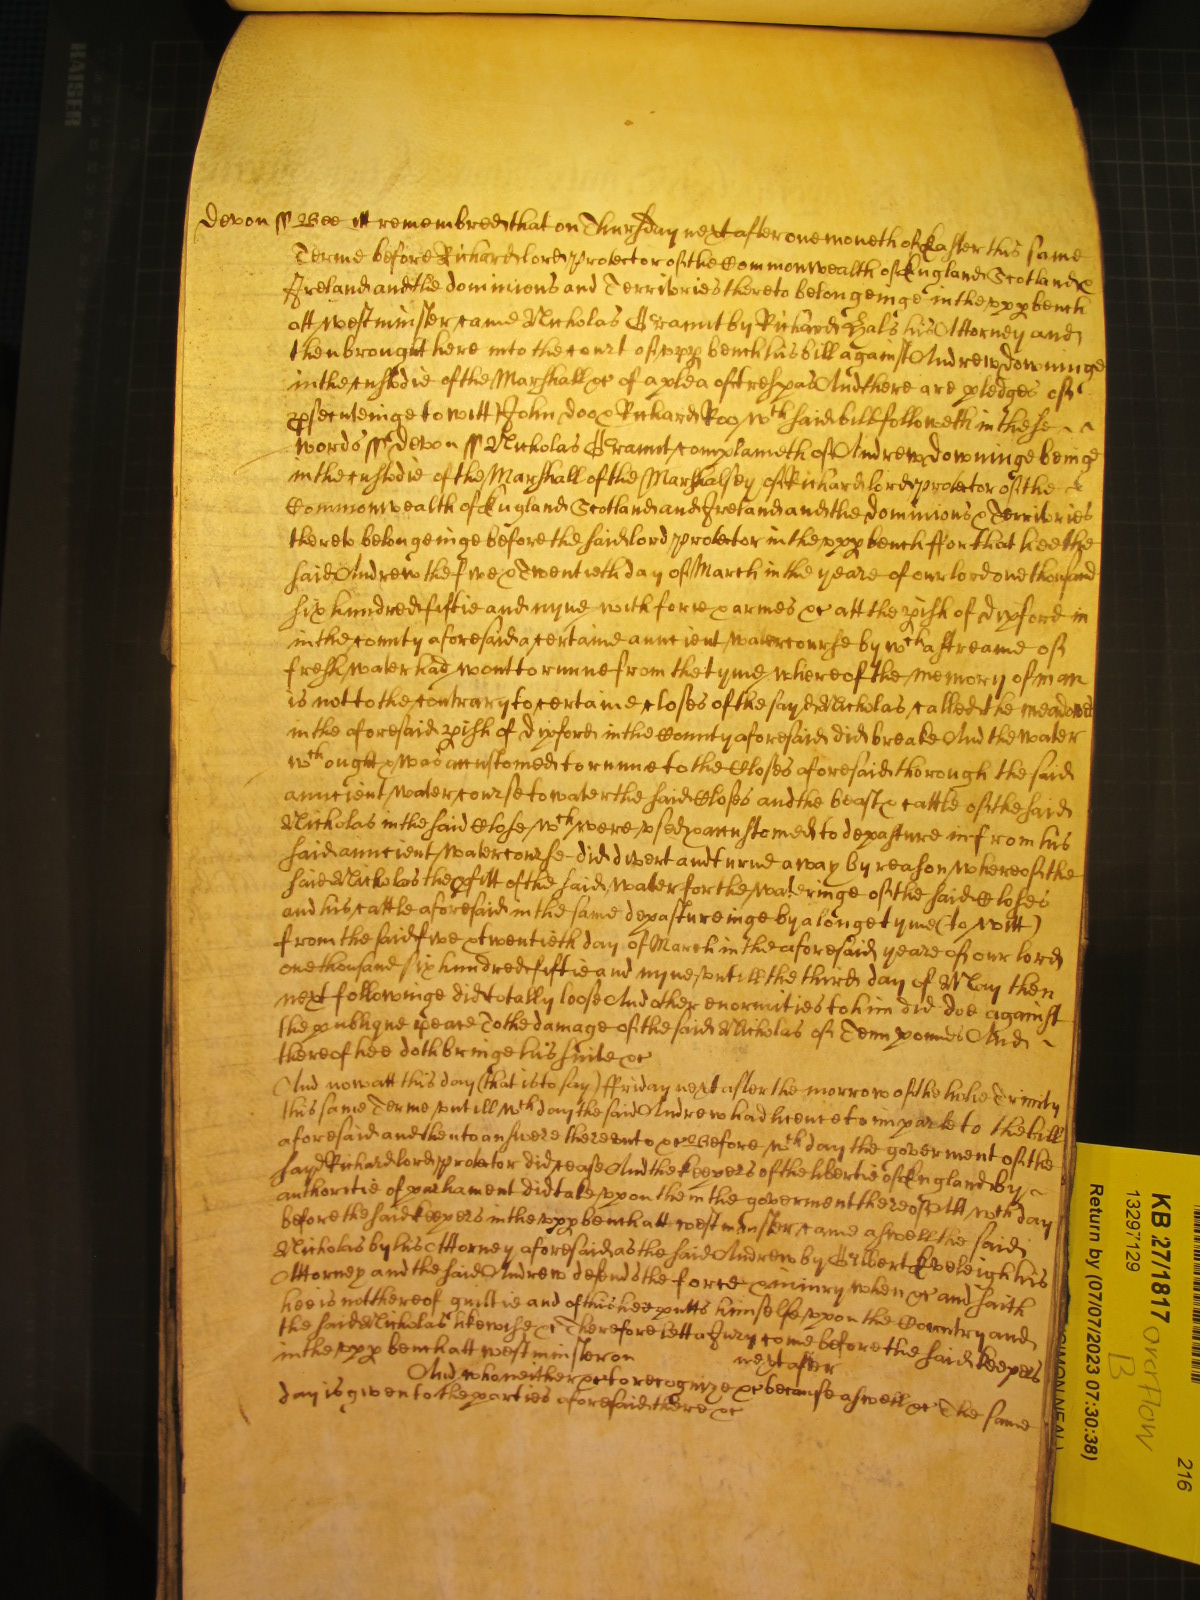 Devon ss Bee itt remembred that on Thursday next after one moneth of Easter this same
Terme before Richard lord protector of the Commonwealth of England Scotland &
Ireland and the dominions and Territories thereto belongeinge in the upp bench
att westminster came Nicholas by Richard Hals his Attorney and
then brought here into the court of upp bench his bill against Andrew downinge
in the custodie of the Marshall &c of a plea of trespas And there are pledges of
psecuteinge to witt John doo & Richard Roo wch said bill followeth in these
words ss devon ss Nicholas complaineth of Andrew downinge beinge
in the custodie of the Marshall of the Marshalsey of Richard lord protector of the
Commonwealth of England Scotland and Ireland and the dominions & Territories
thereto belongeinge before the said lord protector in the upp bench ffor that hee the
said Andrew the five & Twentieth day of March in the yeare of our lord one thousand
six hundred fiftie and nyne with force & armes &c att the pish of dipford in
in the county aforesaid a certaine auncient watercourse by wch a streame of
fresh water had wont to runne from the tyme whereof the memory of man
is not to the contrary to certaine closes of the sayd Nicholas called the meadowes
in the aforesaid pish of dipford in the County aforesaid did breake And the water
wch ought & was accustomed to runne to the Closes aforesaid thorough the said
auncient watercourse to water the said Closes and the beast & cattle of the said
Nicholas in the said Close wch were used & accustomed to depasture in from his
said auncient watercourse did divert and turne away by reason whereof the
said Nicholas the pfitt of the said water for the wateringe of the said Closes
and his cattle aforesaid in the same depastureinge by a longe tyme (to witt)
from the said five & twentieth day of March in the aforesaid yeare of our lord
one thousand six hundred fiftie and nyne untill the third day of May then
next followinge did totally loose And other enormities to him did doe against
the publique peace To the damage of the said Nicholas of Tenn pounds And
thereof hee doth bringe his suite &c
And now att this day (that is to say) ffriday next after the morrow of the holie Trinity
this same Terme untill wch day the said Andrew had licence to imparle to the bill
aforesaid and then to answere thereunto &c Before wch day the goverment of the
sayd Richard lord protector did cease And the keepers of the libertie of England by
authoritie of parliament did take uppon them the goverment thereof Att wch day
before the said keepers in the upp bench att westminster came aswell the said
Nicholas by his Attorney aforesaid as the said Andrew by Gilbert Eveleigh his
Attorney and the said Andrew defends the force & iniury when &c and saith
hee is not thereof guiltie and of this hee putts himselfe uppon the Countrey and
the said Nicholas likewise &c Therefore lett a Jury come before the said keepers
in the upp bench att westminster on next after
And who neither &c to recognize &c because aswell &c The same
day is given to the parties aforesaid there &c
HAISER
KB 27/1817
13297129
Return by (07/07/2023 07:30:38)
overflow
B
216